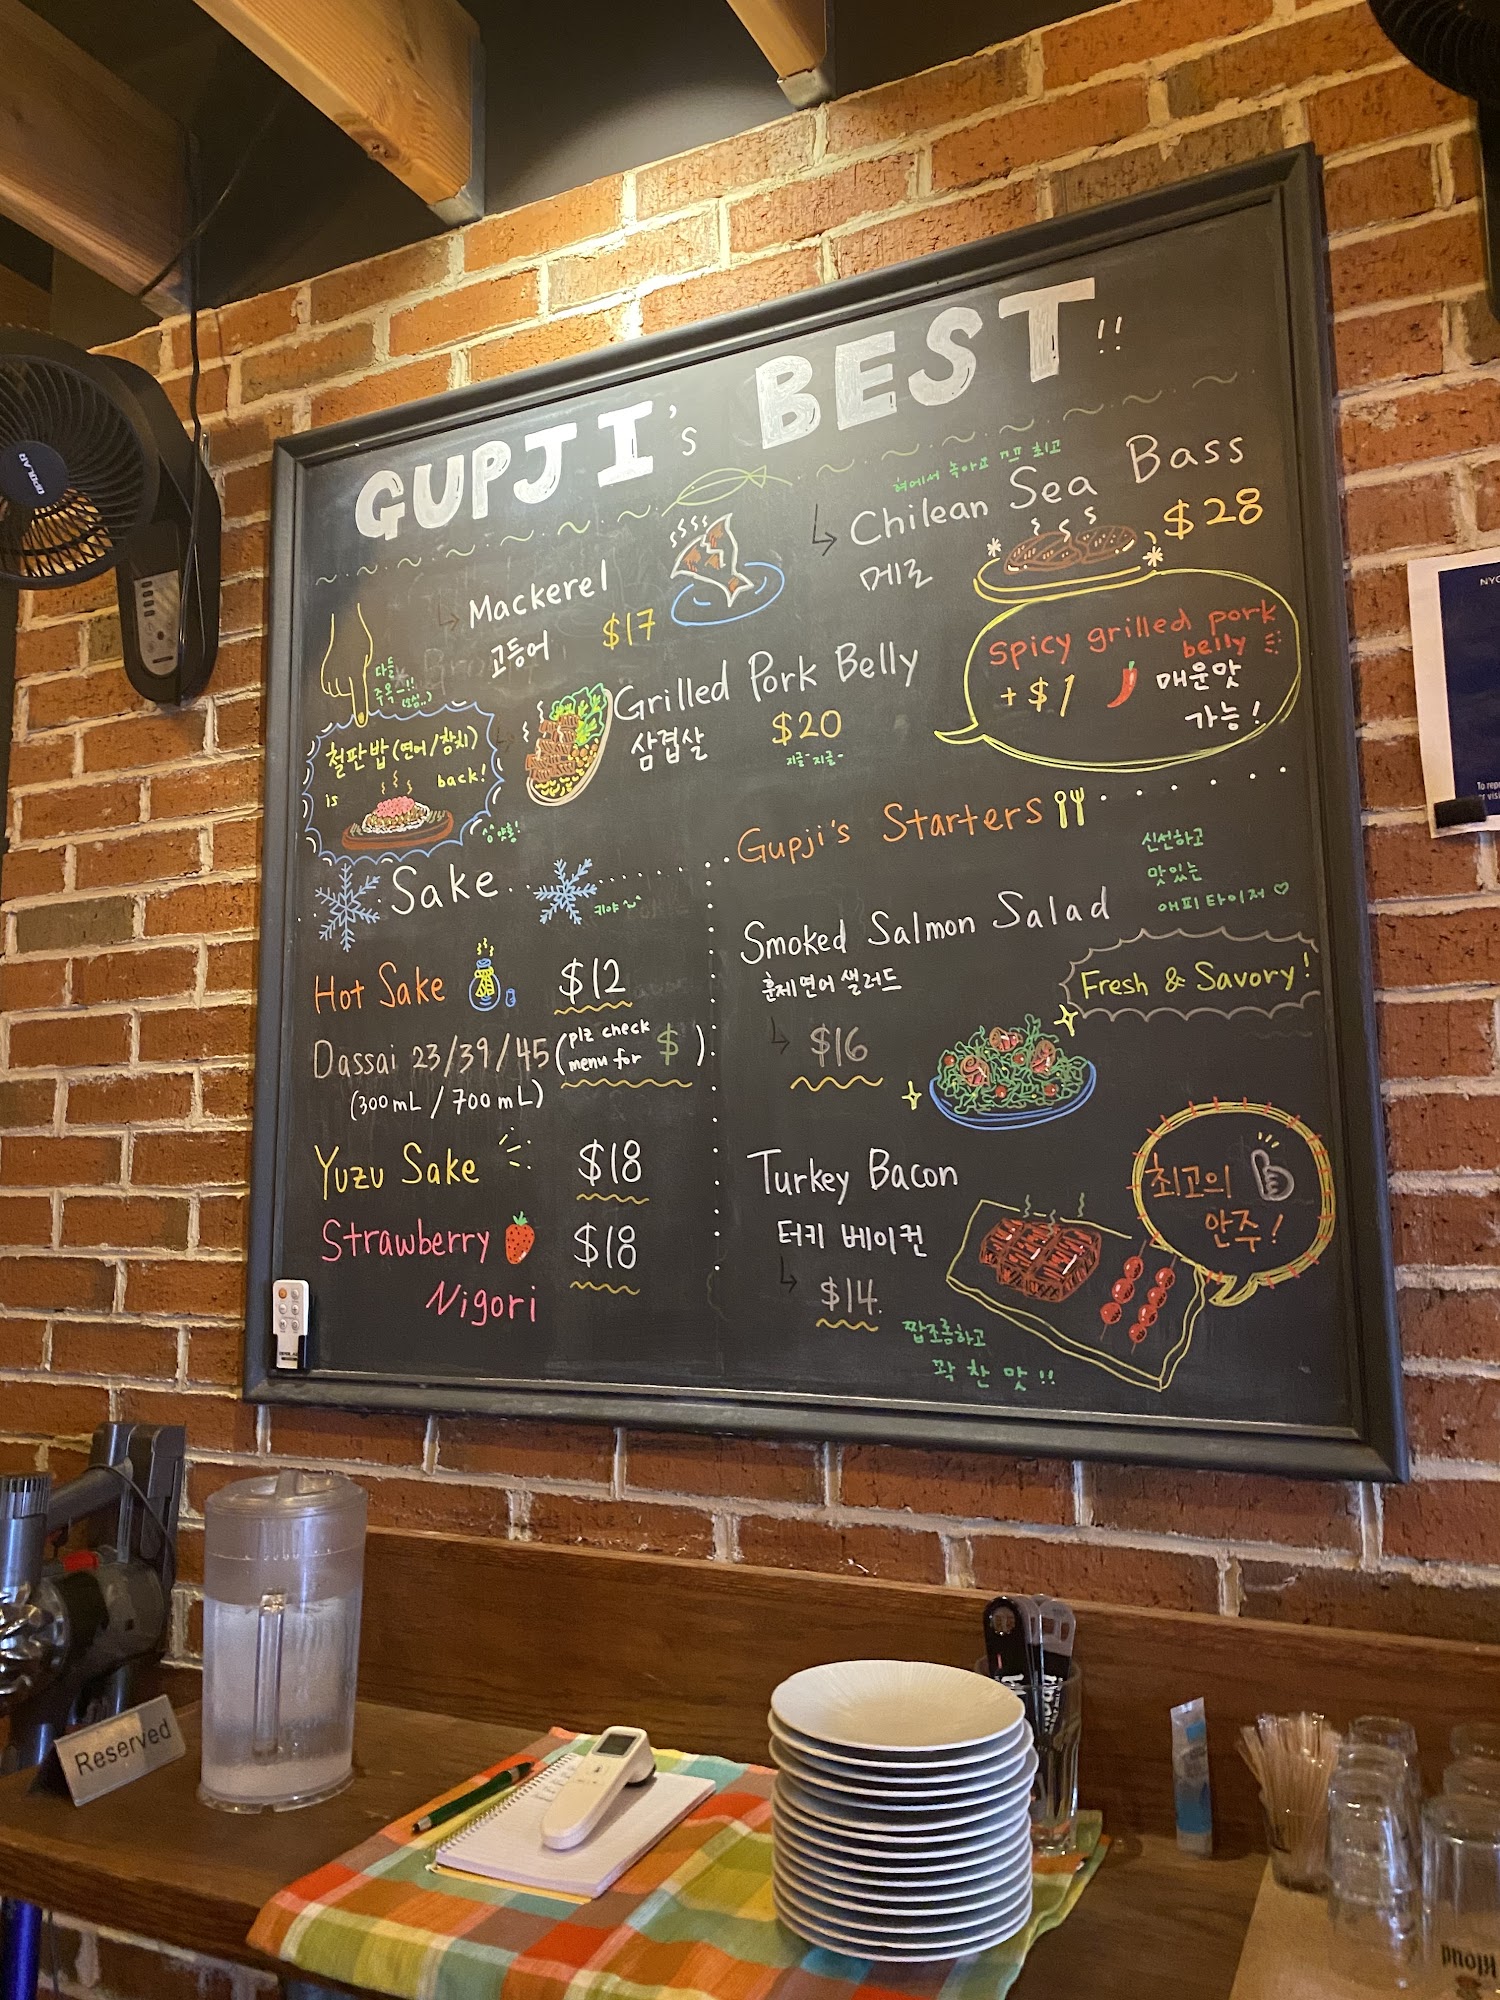 GUPJI's BEST!!
Mackerel
고등어 $17
혀에서 녹아요 ㅋㅋ 최고
Chilean Sea Bass
메로 $28
spicy grilled pork
belly
+ $1 매운맛
가능!
Grilled Pork Belly
삼겹살 $20
지글~지글~
다들
주목-!!
철판밥 (연어/참치)
is back!
Sake
Hot Sake $12
Dassai 23/39/45 (plz check
menu for $)
(300mL / 700mL)
Yuzu Sake $18
Strawberry $18
Nigori
Gupji's Starters
신선하고
맛있는
애피타이저 ♡
Smoked Salmon Salad
훈제연어 샐러드
Fresh & Savory!
$16
Turkey Bacon
터키 베이컨
$14
최고의
안주!
짭조롬하고
꽉 찬 맛!!
OPOLAR
NYC
Reserved
Kloud